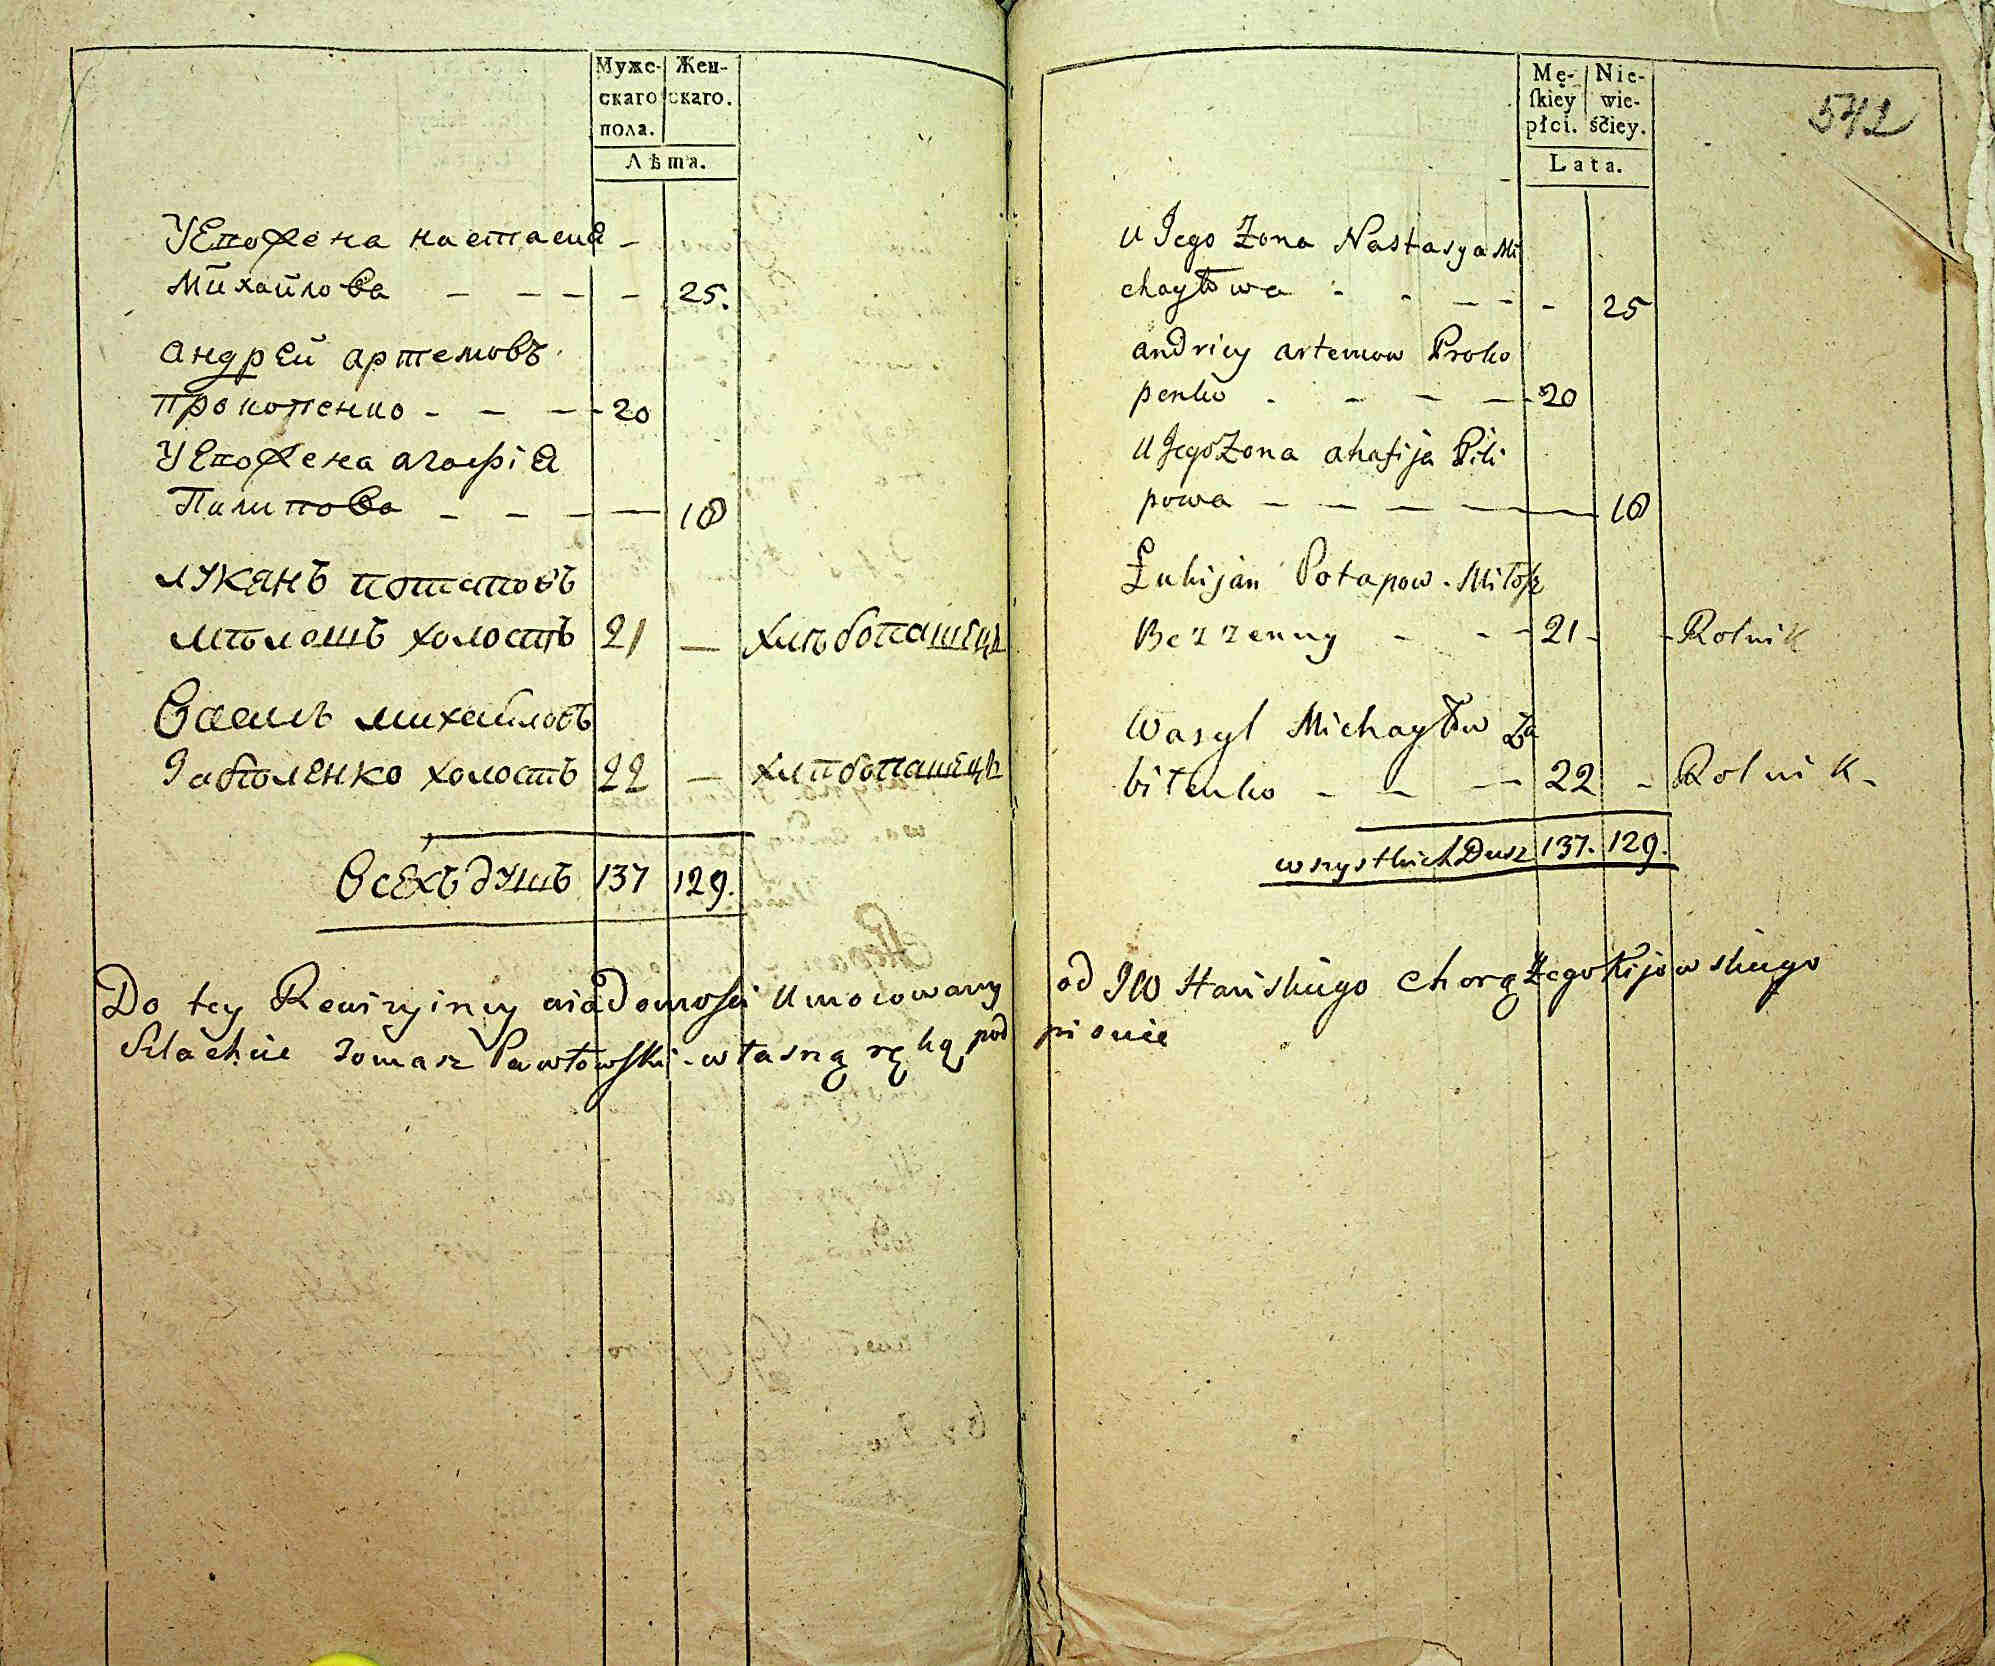 Муже- Жен-
скаго скаго.
пола.
Лѣта.
УЕгоЖена настасиѧ -
Михайлова - - - - 25.
андрЕй артемовъ
прокопенко - - - - 20
УЕгоЖена агафіѧ
Пилипова - - - - 18
лукѧнъ потаповъ
мѣлошъ холостъ 21 - хлѣбопашЕцъ
Василь михайловъ
ЗабѣлЕнко холостъ 22 - хлѣбопашЕцъ
всЕхъ душъ 137 129.
Mę- Nie-
ſkiey wie-
płci. ściey.
Lata.
542
U Jego Żona Nastasya Mi
chayłowa - - - - - 25
andriey artemow Proko
penko - - - - 20
U Jego Żona ahafija Pili
powa - - - - - 18
Łukijan Potapow - Miłosz
Bezzenny - - - 21 - - Rolnik
Wasyl Michayłow Za
biłenko - - - 22 - Rolnik -
wszystkich Dusz 137. 129.
Do tey Rewizyiney wiadomości Umocowany od JW Hańskiego Chorążego Kijowskiego
Szlachcic Tomasz Pawłowski - własną ręką podpisuie